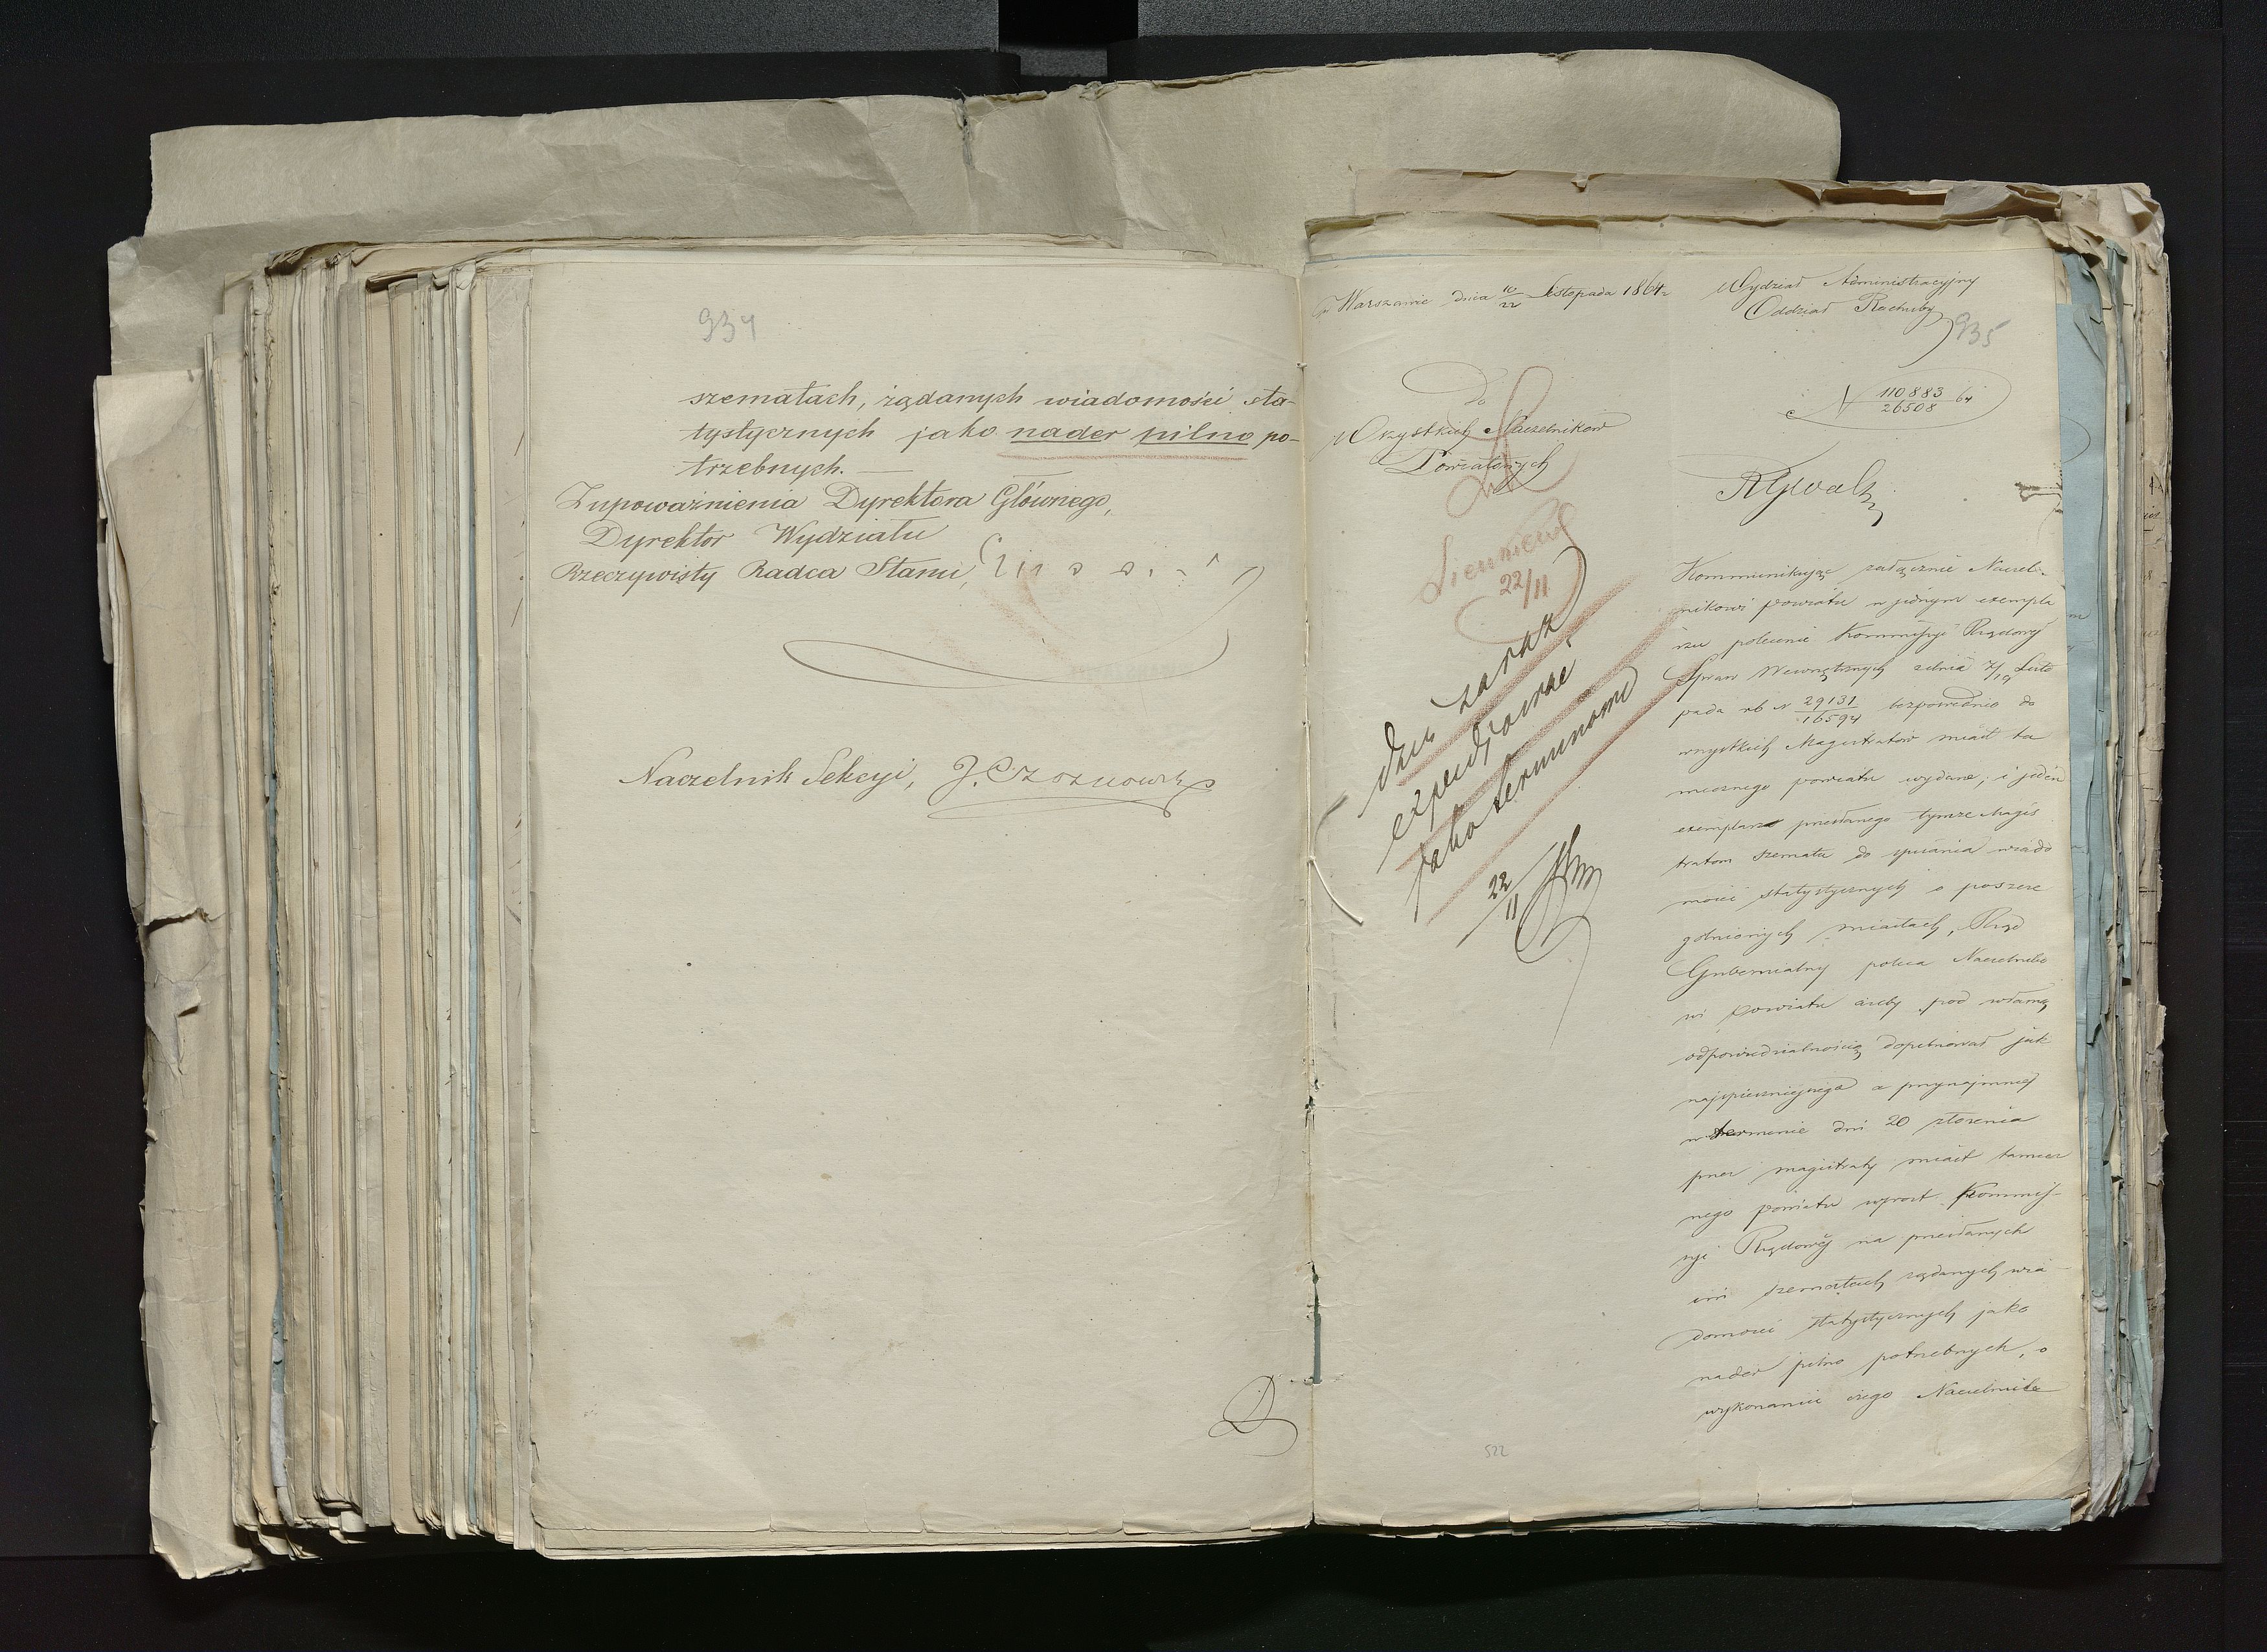 934
szematach, żądanych wiadomości sta-
tystycznych jako nader pilno po-
trzebnych. —
Zupoważnienia Dyrektora Głównego,
Dyrektor Wydziału
Rzeczywisty Radca Stanu,
Naczelnik Sekcyi,
w Warszawie dnia 10/22 Listopada 1864 r
Wydział Administracyjny
Oddział Rachuby
935
N 110883/26508 64
Do
Wszystkich Naczelników
Powiatowych
22/11
dziś zaraz
expedjować
jako terminowe
22/11
Kommunikując załącznie Naczel-
nikowi powiatu w jednym exempla
rzu polecenie Kommissyi Rządowej
Spraw Wewnętrznych z dnia 7/19 Listo
pada rb N 29131/16594 bezpośrednio do
wszystkich Magistratów miast ta
mecznego powiatu wydane, i jeden
exemplarz przesłanego tymże Magis
tratom szematu do spisania wiado
mości statystycznych o poszcze
gólnionych miastach, Rząd
Gubernialny poleca Naczelniko
wi powiatu ażeby pod własną
odpowiedzialnością dopilnował jak
najspieszniejszego a przynajmniej
w terminie dni 20 złożenia
przez magistraty miast tamecz
nego powiatu wprost Kommis-
syi Rządowej na przesłanych
im szematach żądanych wia-
domości statystycznych jako
nader pilno potrzebnych, o
wykonaniu czego Naczelnik
522